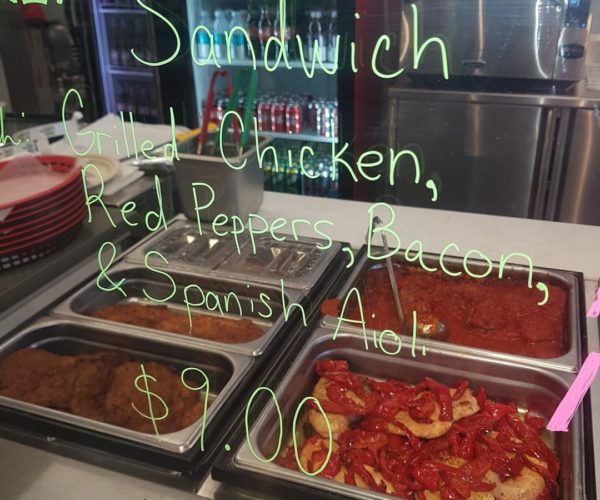 Sandwich
Grilled Chicken,
Red Peppers, Bacon,
& Spanish Aioli
$9.00